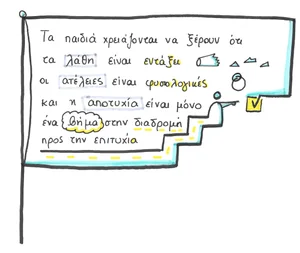 Τα παιδιά χρειάζονται να ξέρουν ότι
τα λάθη είναι εντάξει
οι ατέλειες είναι φυσιολογικές
και η αποτυχία είναι μόνο
ένα βήμα στην διαδρομή
προς την επιτυχία